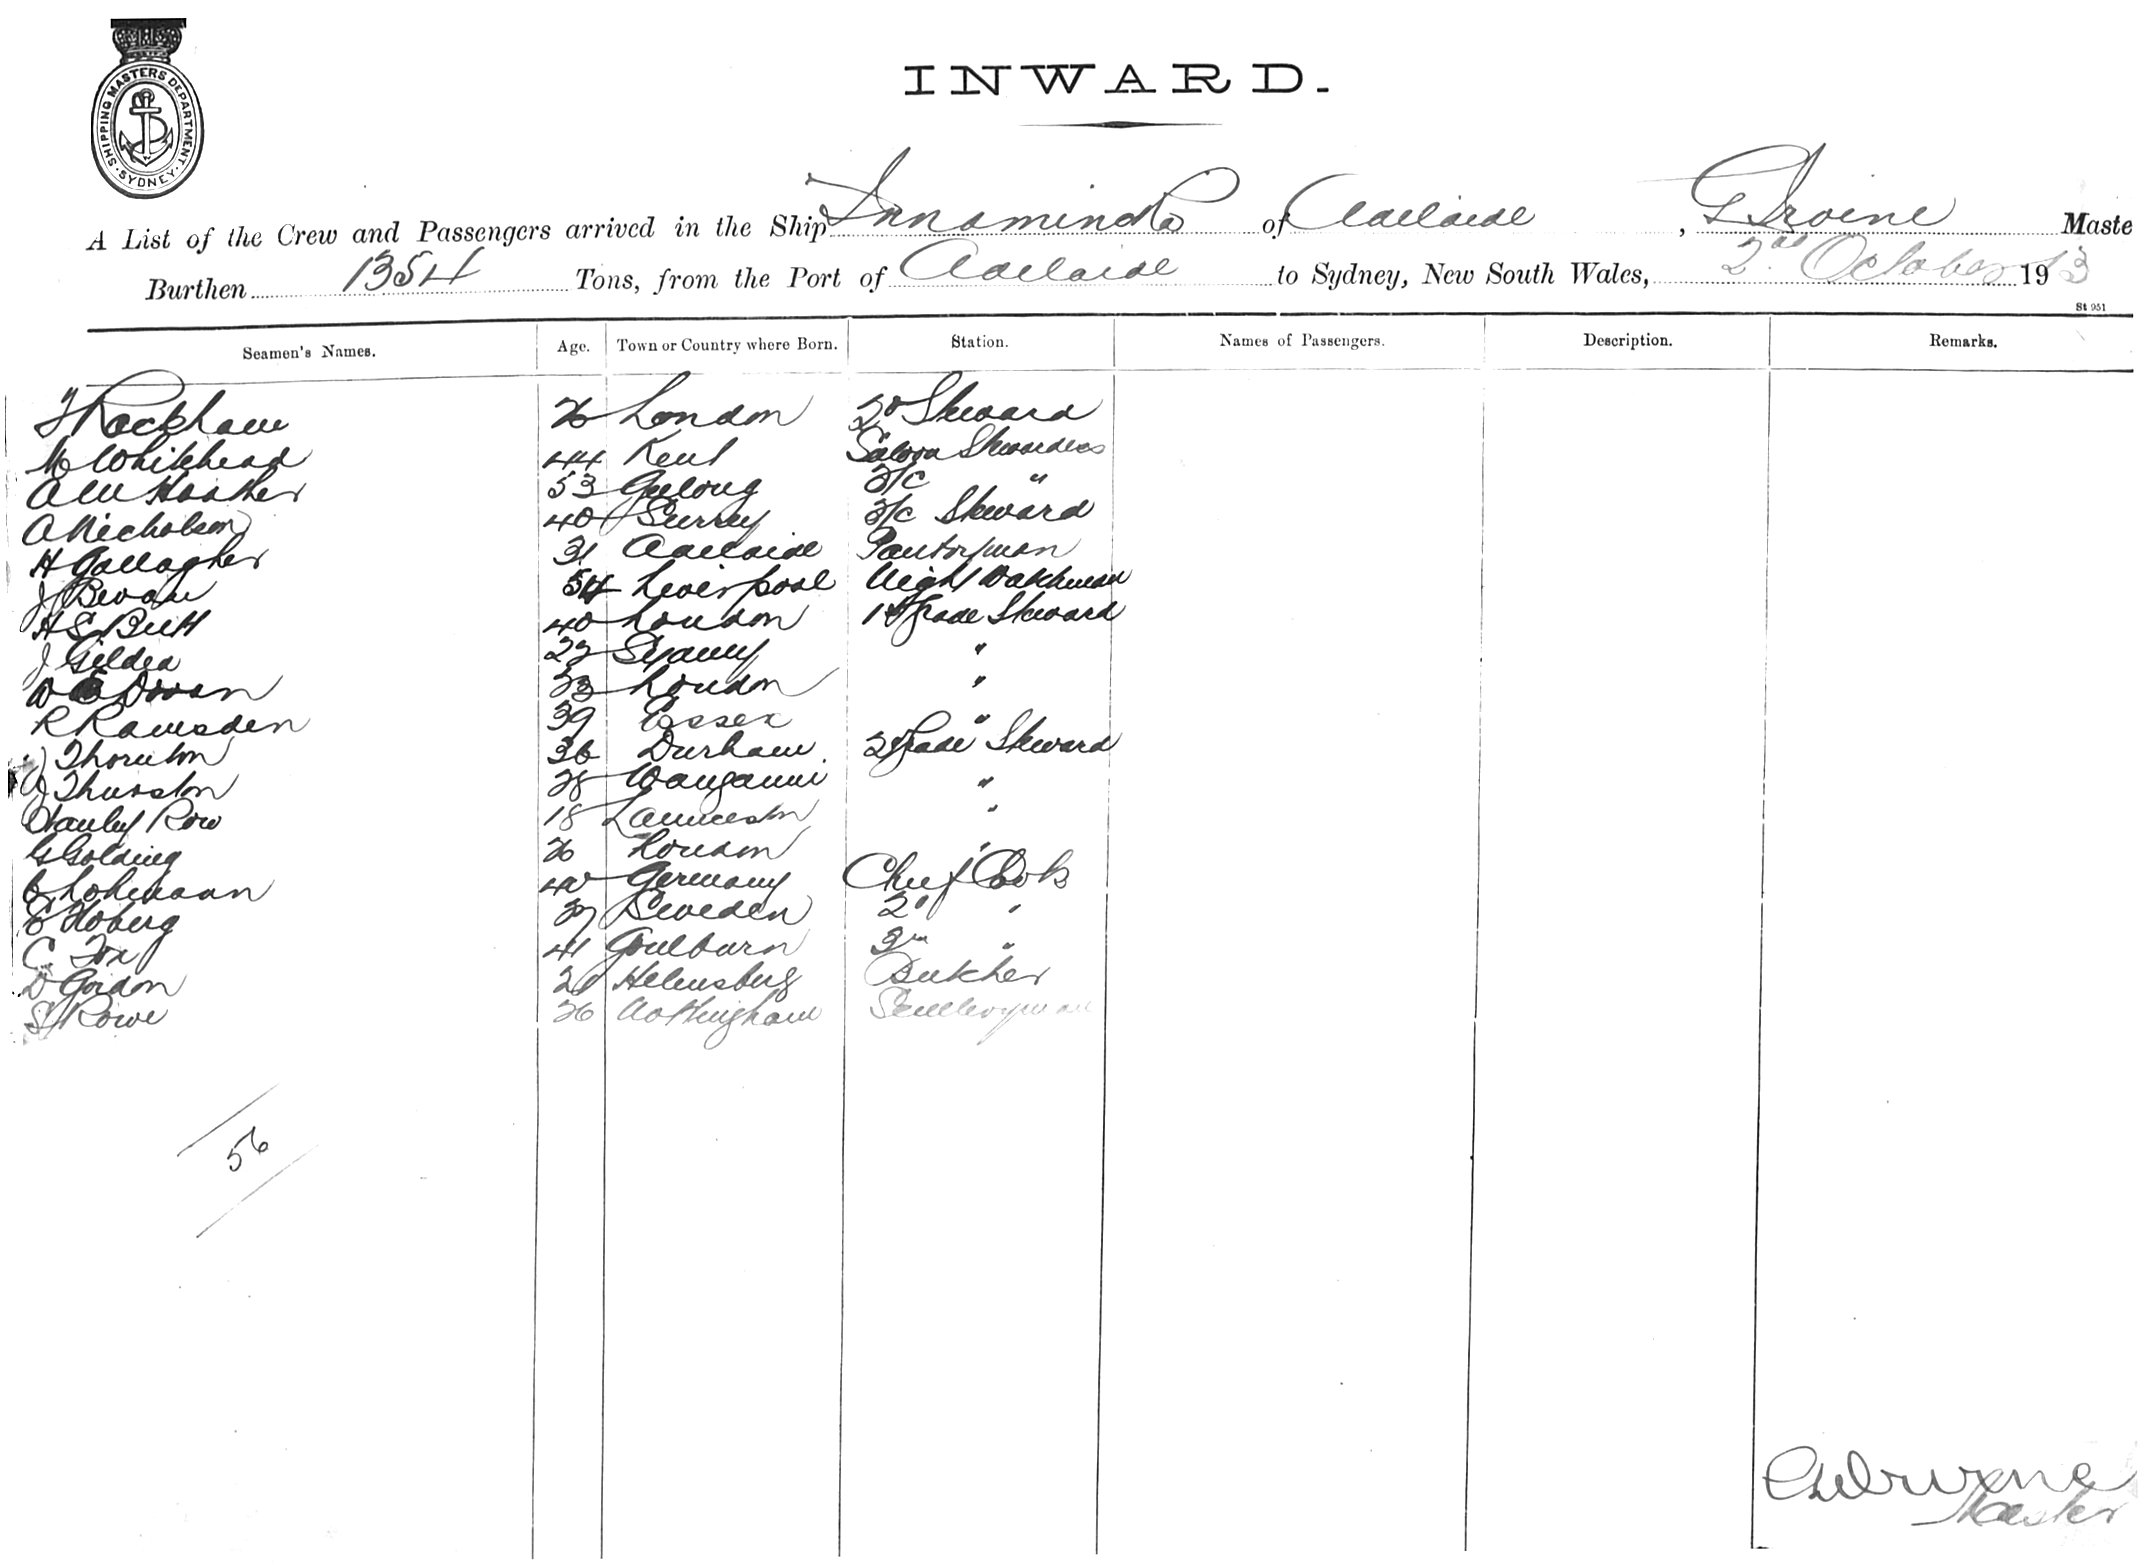 SHIPPING MASTERS DEPARTMENT. SYDNEY.
INWARD.
A List of the Crew and Passengers arrived in the Ship Innamincka of Adelaide, G Irvine Maste
Burthen 1354 Tons, from the Port of Adelaide to Sydney, New South Wales, 2nd October 1913
St 951
Seamen's Names. Age. Town or Country where Born. Station. Names of Passengers. Description. Remarks.
F Rackham 26 London 2d Steward
M Whitehead 44 Kent Saloon Stewardess
A M Hooker 53 Geelong 3/c "
A Nicholson 40 Surrey 3/c Steward
H Gallagher 31 Adelaide Pantryman
J Bevan 54 Liverpool Night Watchman
H S Butt 40 London 1st Grade Steward
J Gildea 22 Sydney "
W Doran 33 London "
R Ramsden 39 Essex "
J Thornton 36 Durham 2d Grade Steward
J Thurston 28 Wanganui "
Stanley Row 18 Launceston "
G Golding 26 London "
C Lohmann 40 Germany Chief Cook
E Hoberg 27 Sweden 2d "
C Fox 41 Goulburn 3rd "
D Gordon 21 Helensburg Butcher
S Rowe 26 Nottingham Sculleryman
56
Master